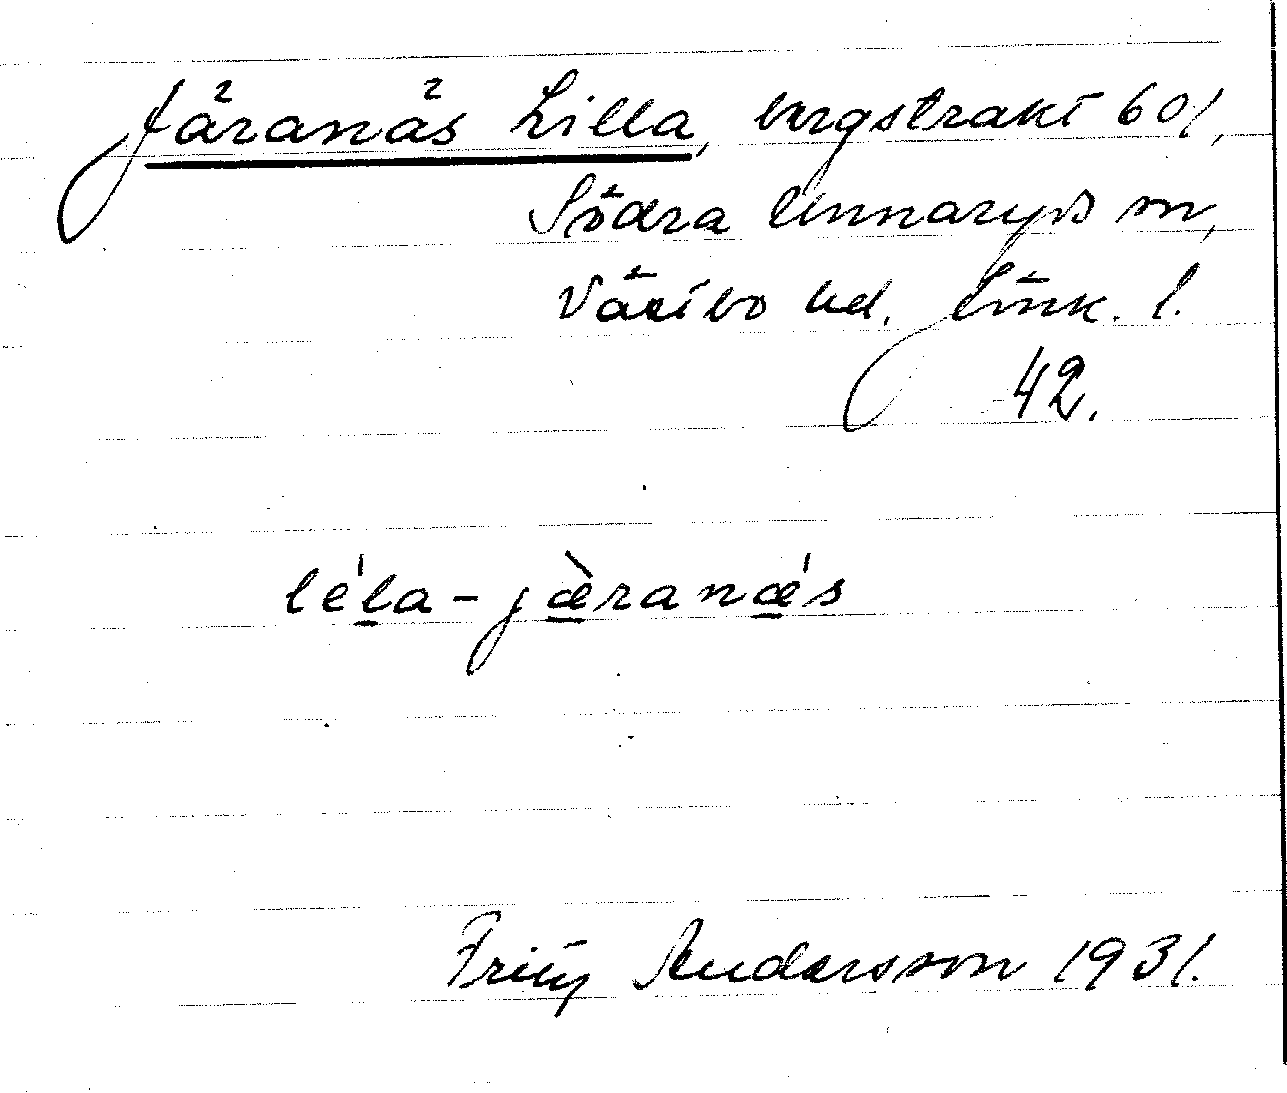 Järanäs Lilla, bergstrakt 601,
Södra Unnaryds sn,
Västbo hd. Jönk. l.
42.
léla-jæ̀ranǽs
Fritz Andersson 1931.